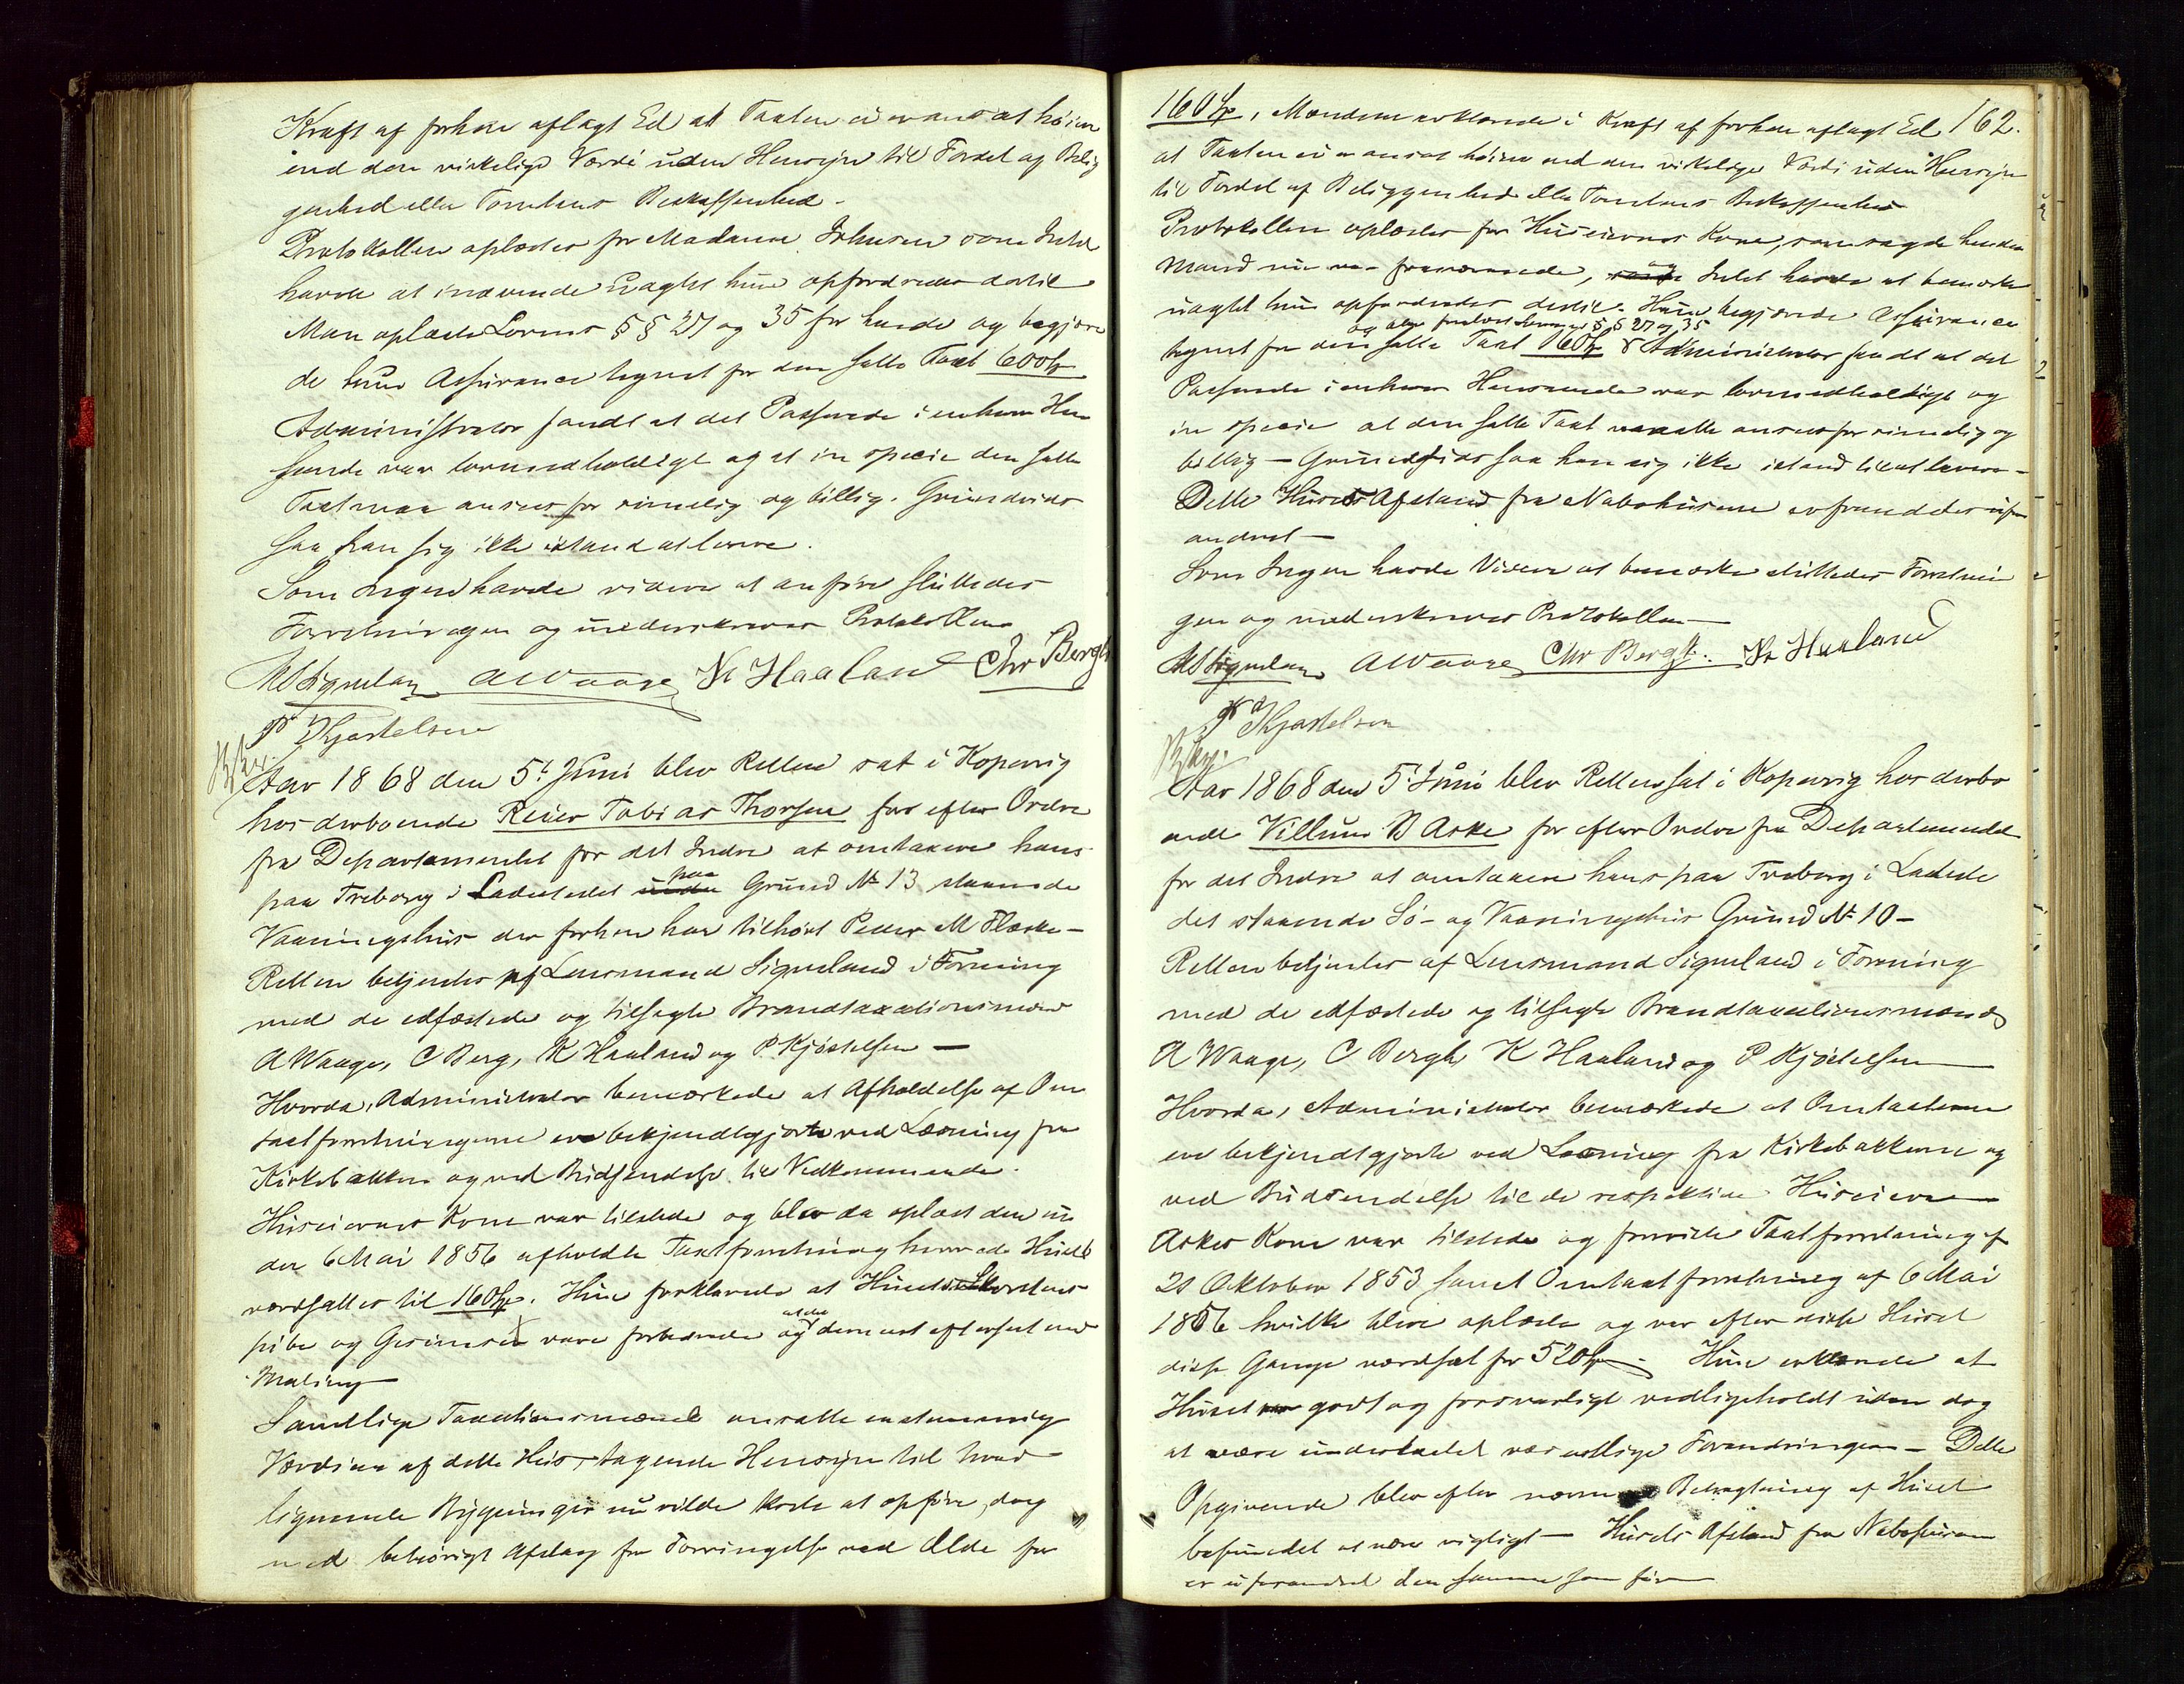 Kraft af forhen aflagt Ed at Taxten ei er ansat høiere
end den virkelige Værdi uden Hensyn til Fordel af Belig
genhed eller Tomtens Beskaffenhed.
Protokollen oplæstes for Madame Johnsen som Intet
havde at indvende uagtet hun opfordredes dertil
Man oplæste Lovens §§ 27 og 35 for hende og begjære
de hun Assurance tegnet for den satte Taxt 600 Sp
Administrator fandt at det Passerede i enhver Hen
seende var lovmedholdigt og at in specie den satte
Taxt maa ansees for rimelig og billig. Grundrids
saa han sig ikke istand at levere.
Som Ingen havde videre at anføre sluttedes
Forretningen og underskreves Protokollen
MSiqueland AWaage K Haaland Chr Bergh
P Kjøstelsen
Aar 1868 den 5t Juni blev Retten sat i Kopervig
hos derboende Reier Tobias Thorsen for efter Ordre
fra Departementet for det Indre at omtaxere hans
paa Treborg i Ladestedet paa Grund № 13 staaende
Vaaningshus der forhen har tilhørt Peder M Flæske –
Retten betjentes af Lensmand Siqueland i Forening
med de edfæstede og tilsagte Brandtaxationsmænd
A Waage, C Berg, K Haaland og P. Kjøstelsen –
Hvorda, Administrator bemærkede at Afholdelse af Om
taxtforretningerne ere bekjendtgjorte ved Læsning fra
Kirkebakken og ved Budsendelse til Vedkommende.
Huseierens Kone var tilstede og blev da oplæst den un
der 6 Mai 1856 afholdte Taxtforretning hvorved Huset
værdsattes til 160 Sp. Hun forklarede at Husets Skorstens
pibe og Gesimser vare forbedrede og at det dernæst efterseet med
Maling
Samtlige Taxationsmænd ansatte enstemmig
Værdien af dette Hus, tagende Hensyn til hvad
lignende Bygninger nu vilde koste at opføre, dog
med behørigt Afslag for Forringelse ved Ælde for
160 Sp, Mændene erklærede i Kraft af forhen aflagt Ed 162.
at Taxten ei er ansat høiere end den virkelige Værdi uden Hensyn
til Fordel af Beliggenhed eller Tomtens Beskaffenhed
Protokollen oplæstes for Huseierens Kone, som sagde hendes
Mand nu var fraværende, og Intet havde at bemærke
uagtet hun opfordredes dertil. Hun begjærede Assurance
og blev forelæst Lovens §§ 27 og 35
tegnet for den satte Taxt 160 Sp Administrator fandt at det
Passerede i enhver Henseende var lovmedholdigt og
in specie at den satte Taxt maatte ansees for rimelig og
billig – Grundrids saa han sig ikke istand til at levere –
Dette Husets Afstand fra Nabohusene er fremdeles ufor
andret –
Som Ingen havde Videre at bemærke sluttedes Forretnin
gen og underskreves Protokollen –
MSiqueland AWaage Chr Bergh. K Haaland
P Kjøstelsen
Aar 1868 den 5 Juni blev Retten sat i Kopervig hos derbo
ende Villum B Aske for efter Ordre fra Departementet
for det Indre at omtaxere hans paa Treborg i Ladeste
det staaende Sø- og Vaaningshus Grund № 10 –
Retten betjentes af Lensmand Siqueland i Forening
med de edfæstede og tilsagte Brandtaxationsmænd
A Waage, C Bergh K Haaland og P Kjøstelsen
Hvorda, Administrator bemærkede at Omtaxterne
ere bekjendtgjorte ved Læsning fra Kirkebakkerne og
ved Budsendelse til de respektive Huseiere
Askes Kone var tilstede og foreviste Taxtforretning af
21 Oktober 1853 samt Omtaxtforretning af 6 Mai
1856 hvilke bleve oplæste og var efter disse Huset
disse Gange værdsat for 520 Sp – Hun erklærede at
Huset var godt og forsvarligt vedligeholdt uden dog
at være undertaget væsentlige Forandringer – Dette
Opgivende blev efter Betragtning af Huset
befundet at være rigtigt – Husets Afstand fra Nabohusene
er uforandret den samme som før